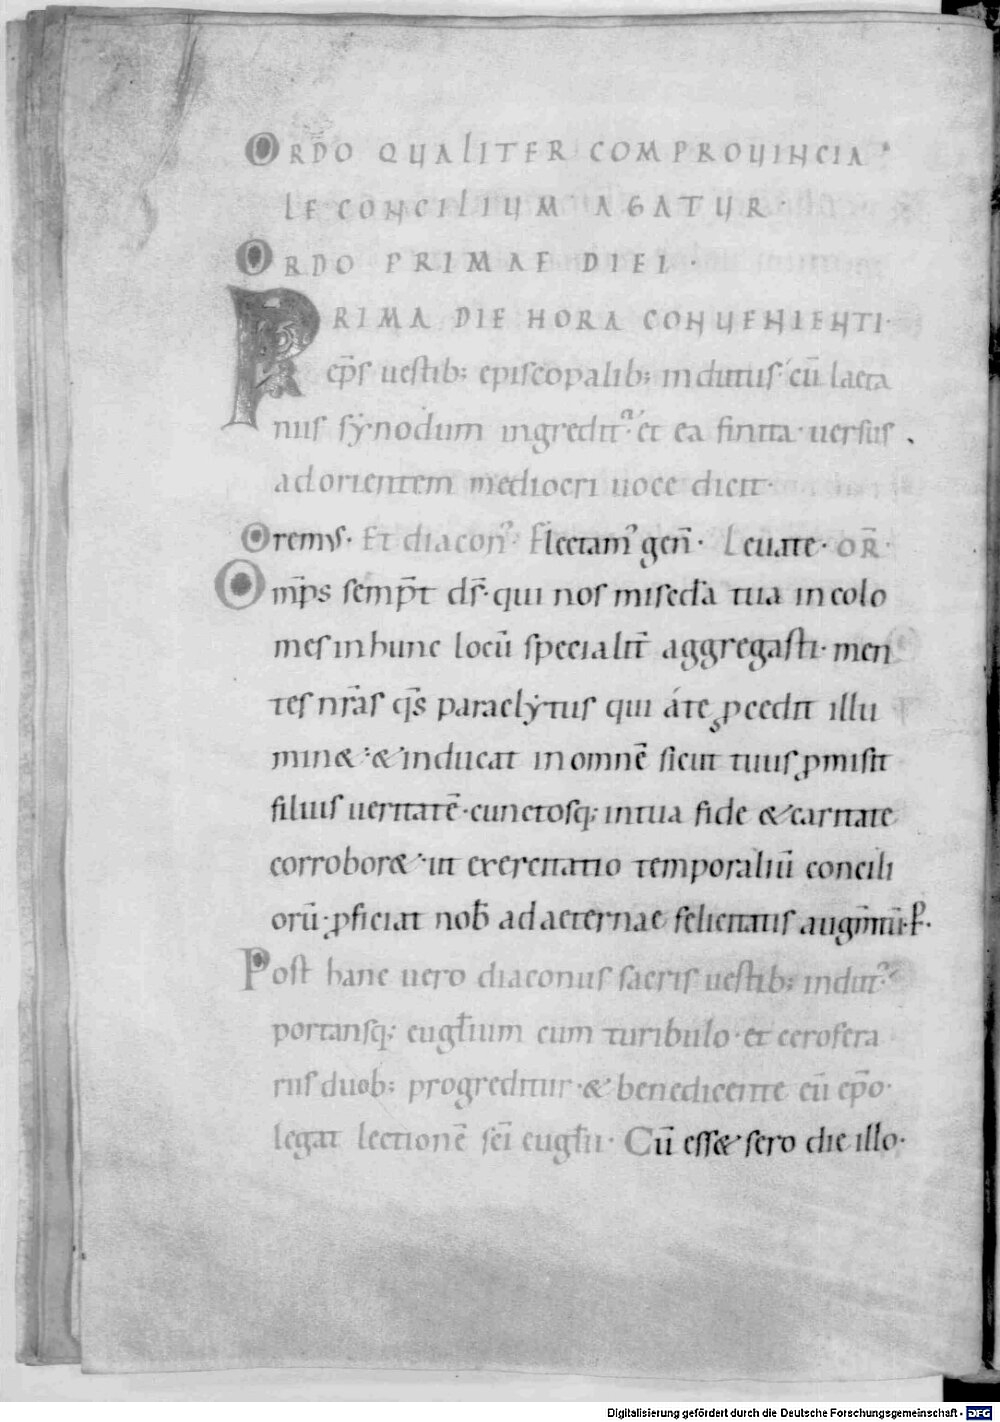 ORD̄O QUALITER COMPROUINCIA
LE CONCILIUM AGATUR·
ORDO PRIMAE DIEI·
PRIMA DIE HORA CONUENIENTI·
ep̄s uestib; episcopalib; indutus cū laeta
niis sẏnodum ingredit᷒· et ea finita· uersus
ad orientem mediocri uoce dicit·
Oremus· Et diacon᷒· Flectam᷒ gen̄· Leuate· OR̄·
Om̄ps semp̄t ds̄· qui nos miscd̄a tua incolo
mes in hunc locū specialit̄ aggregasti· men
tes nr̄as q̄s paraclẏtus qui á te ꝓcedit illu
min&· & inducat in omnē sicut tuus ꝓmisit
filius ueritatē· cunctosq; in tua fide & caritate
corrobor&· ut exercitatio temporaliū concili
orū· ꝓficiat nob̄ ad aeternae felicitatis augm̄tū· P̄·
Post hanc uero diaconus sacris uestib; indut᷒·
portansq; eugl̄ium cum turibulo· et cerofera
riis duob; progreditur· & benedicente eū ep̄o·
legat lectionē sc̄i eugl̄ii· Cū ess& sero die illo·
Digitalisierung gefördert durch die Deutsche Forschungsgemeinschaft - DFG